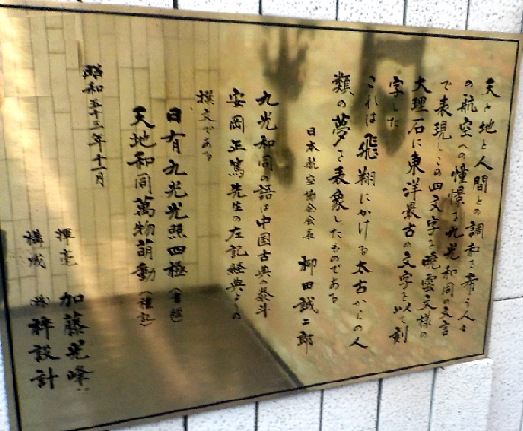 天と地と人間との調和を希う人々
の航空への憧憬を九光和同の文言
で表現しこの四文字を飛雲文様の
大理石に東洋最古の文字を以て刻
字した
これは飛翔にかける太古からの人
類の夢を表象したものである
日本航空協会会長 柳田誠二郎
九光和同の語は中国古典の泰斗
安岡正篤先生の左記経典よりの
撰文である
日有九光光照四極
天地和同萬物萌動(禮記)
昭和五十三年十一月
揮毫 加藤光峰
構成 設計